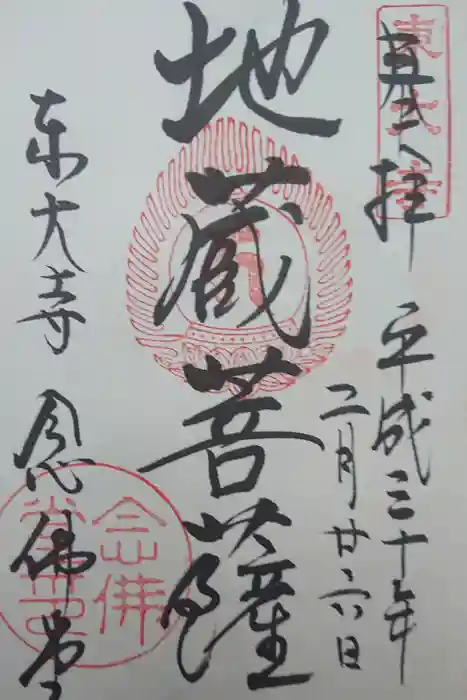 奉拝
平成三十年
二月廿六日
地蔵菩薩
東大寺 念佛堂
東大寺
念佛堂